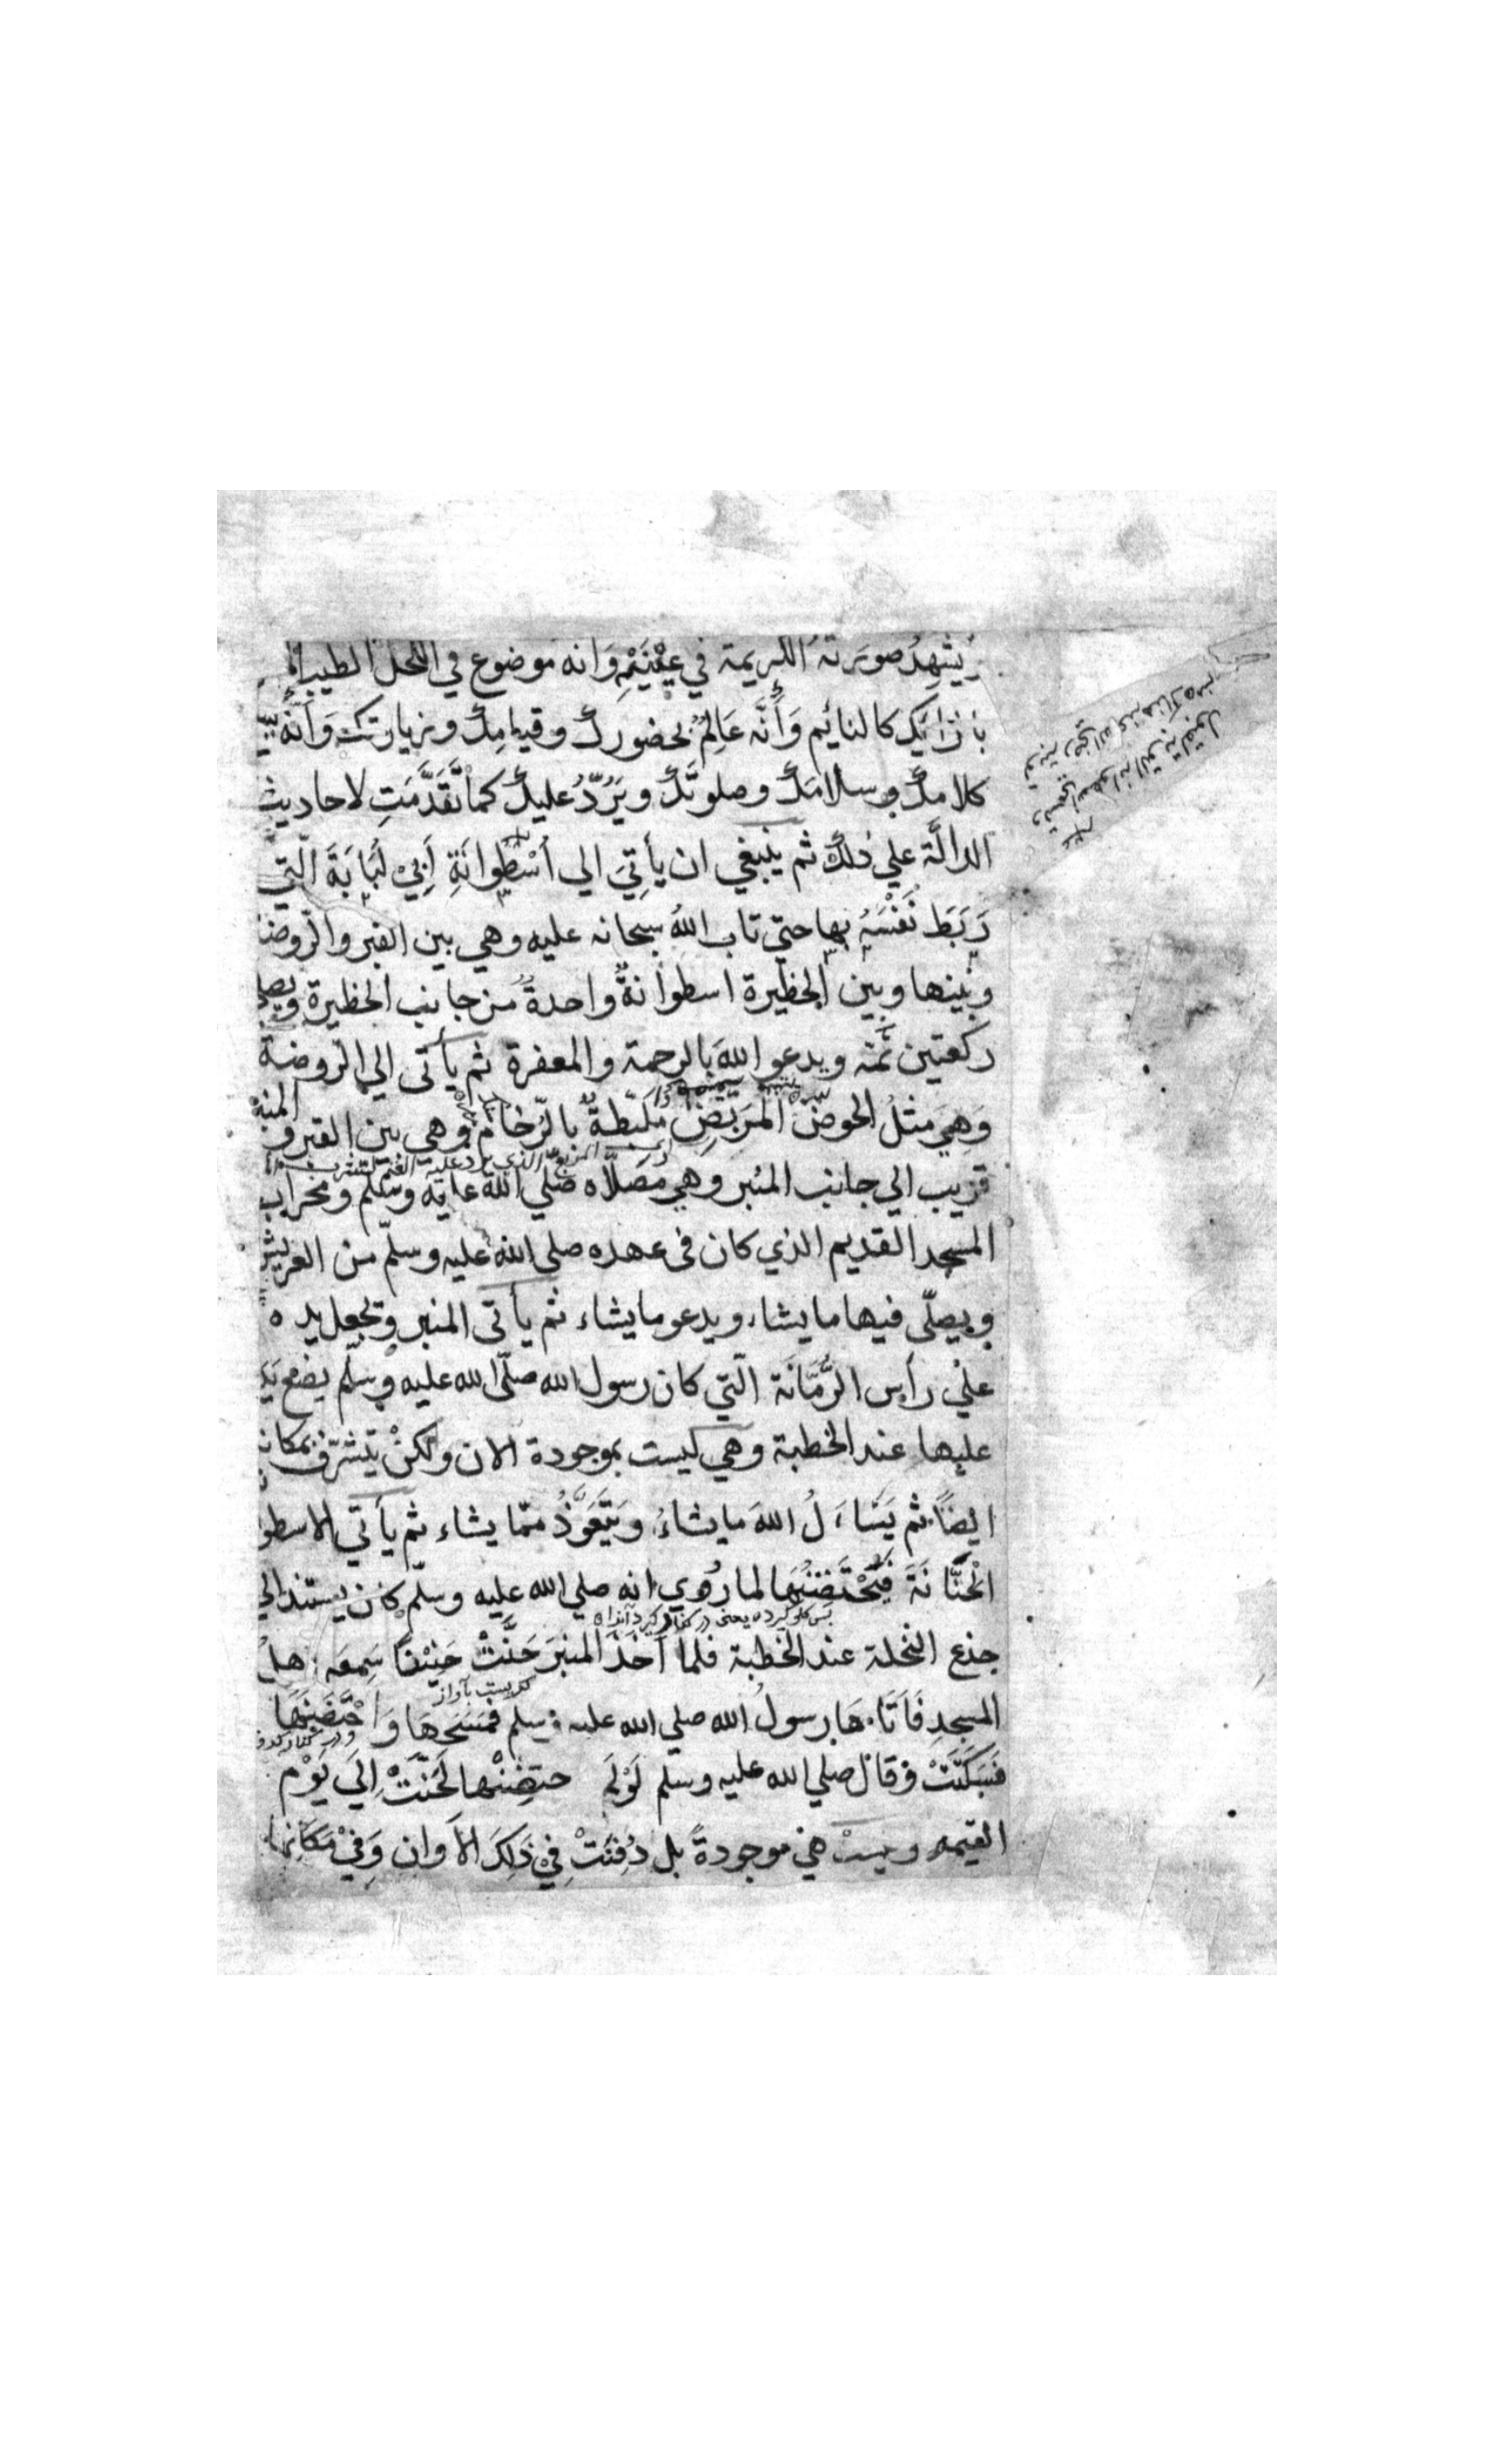 يشهد صورته الكريمة في عينيه وانه موضوع في اللحد
بازائك كالنائم وَأَنَّه عَالِمٌ بحضورك وقيامِك وزيارتك وَانَّه
كلامك وسلامَك وصلوتَك ويَرُدُّ عليك كما تَقَدَّمَتِ لاحاديث
الدالَّة علي ذلك ثم ينبغي ان يأتِيَ الي اُسْطُوانَةِ اَبِيْ لُبَابَةَ الَّتِي
رَبَطَ نَفْسَهُ بها حتي تاب اللهُ سبحانه عليه وهي بين القبر والروضة
وبينها وبين الحظيرة اسطوانةٌ واحدةٌ من جانب الحظيرة ويصلي
ركعتين ثَمَّه ويدعو اللهَ بالرحمة والمغفرة ثم يأتى الي الروضة
وَهِيَ مثلُ الحوض المربّع مبلّطةٌ بالرّخام وهي بين القبر والمنبر
قريب الي جانب المنبر وهي مُصَلّاه صلي الله عليه وسلم ومحراب
المسجد القديم الذي كان فى عهده صلي الله عليه وسلّم من العريش
ويصلّى فيها ما يشاء ويدعو ما يشاء ثم يأتى المنبر ويجعل يده
علي رأس الرُّمَّانَة الّتي كان رسول الله صلّى الله عليه وسلّم يضع يد
عليها عند الخطبة وهي ليست بموجودة الان ولكنْ يتشرّف بمكانه
ايضًا ثم يَسْاَلُ اللهَ ما يشاءُ ويَتَعَوَّذُ ممّا يشاء ثم يأتي الاسطو
الْحَنَّانَةَ فَيَحْتَضِنُهَا لما رُوِي انه صلي الله عليه وسلّم كان يستند الي
بس كلو كيرد يعنى در كنار كيرد آنرا
جذع النخلة عند الخطبة فلما اَخَذَ المنبرَ حَنَّتْ حَنِيْنًا سَمِعَه اهل
كه بيست بآواز
المسجدِ فَاَتَاهَا رسولُ الله صلي الله عليه وسلم فَمَسَحَهَا وَاحْتَضَنَهَا
فَسَكَنَتْ وقال صلي الله عليه وسلم لَوْلَمْ حتضنها لَحَنَّتْ اِلَي يَوْم
القيمه وليست هي موجودةً بل دُفِنَتْ فِيْ ذَلِكَ الاَوان وَفِيْ مَكَانِهَا